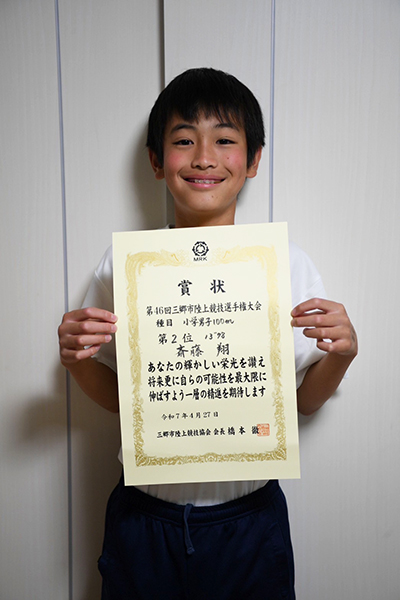 MRK
賞状
第46回三郷市陸上競技選手権大会
種目 小学男子100m
第2位 13"98
斎藤 翔
あなたの輝かしい栄光を讃え
将来更に自らの可能性を最大限に
伸ばすよう一層の精進を期待します
令和7年4月27日
三郷市陸上競技協会 会長 橋本 徹